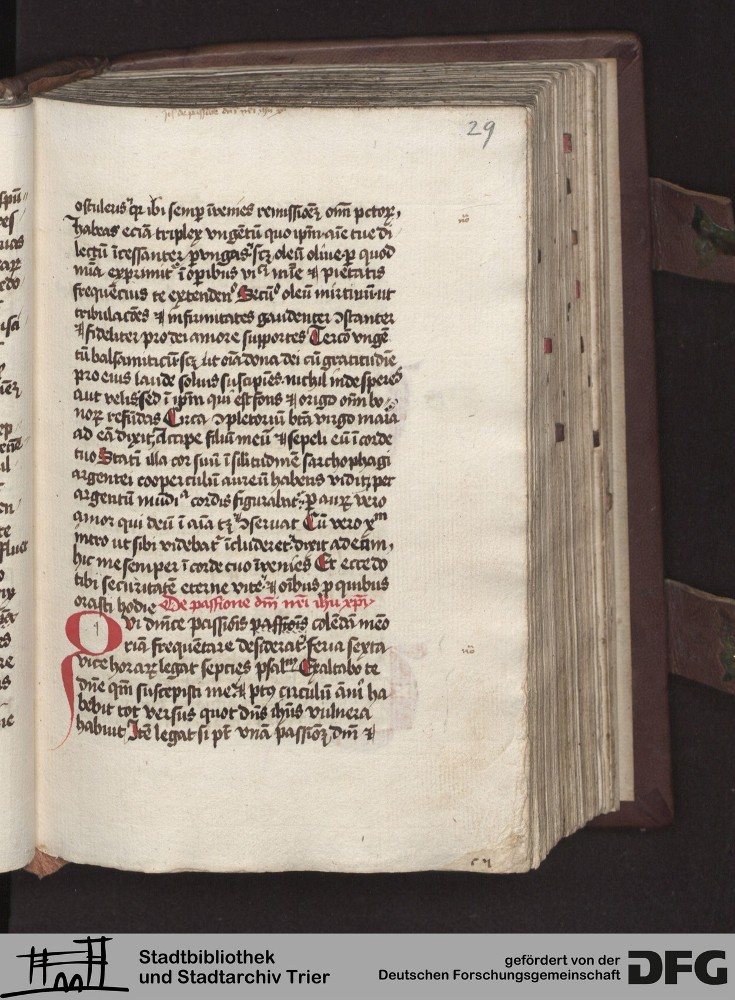 jtē de passione dnī nrī ihū xpi
29
osculeris qr ibi semper īvenies remissionē oīm pctorꝫ,
habeas eciā triplex vngētū quo ipm aīe tue di
lectū īcessanter pvngas scꝫ oleū oliue p quod
mīa exprimit ī opibus vꝫ mīe ⁊ pietatis
frequēcius te extendendo Secūdo oleū mirtinū ut
tribulacōes ⁊ infirmitates gaudenter ⁊ ɔstanter
⁊ fideliter pro dei amore supportes Tercō vngē
tū balsamiticū scꝫ ut oīa dona dei cū gratitudīe
pro eius laude solius suscipies nichil inde speres
aut velis sed ī ipm qui est fons ⁊ origo oīm bo
norꝫ refundas Circa ɔpletoriū btā virgo maīa
ad eā dixit Accipe filiū meū ⁊ sepeli eū ī corde
tuo Statī illa cor suū ī silitudinē sarchophagi
argentei cooperculū aureū habens vidit per
argentū mūdicia cordis figurabatur p aurꝫ vero
amor qui deū ī aīa tꝫ ⁊ ɔseruat Cū vero xpm
intro ut sibi videbatur īcluderet dixit ad eam,
hic me semper ī corde tuo īvenies Et ecce do
tibi securitatē eterne vite ⁊ oībus p quibus
orasti hodie De passione dnī nrī ihū xpi
Qvi dnīce passiōis passiōis colēda meō
riā frequētare desiderat feria sexta
vice horarꝫ legat septies psalm Exaltabo te
dnē qm suscepisti me ⁊ ptꝫ circulū ānī ha
bebit tot versus quot dns ihūs vulnera
habuit Itē legat si pt vnā passionē dnī ⁊
Stadtbibliothek
und Stadtarchiv Trier
gefördert von der
Deutschen Forschungsgemeinschaft
DFG